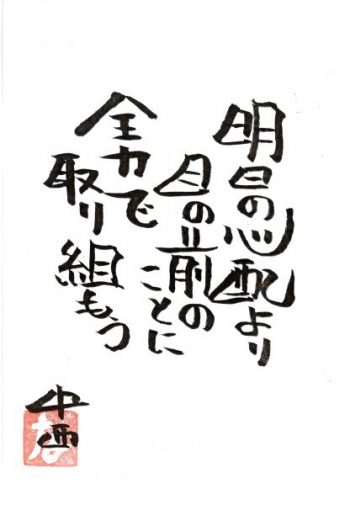 明日の心配より
目の前の
ことに
全力で
取り組もう
中西
な